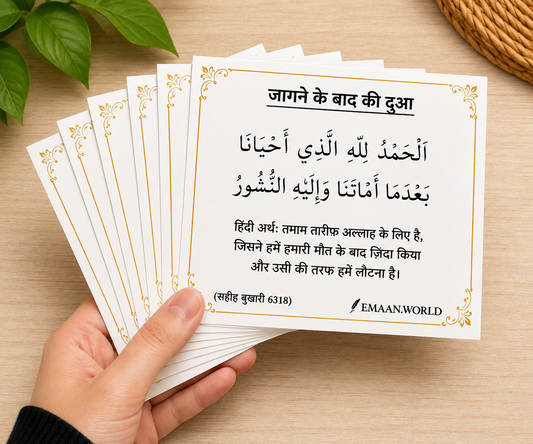 जागने के बाद की दुआ
اَلْحَمْدُ لِلّٰهِ الَّذِي أَحْيَانَا
بَعْدَمَا أَمَاتَنَا وَإِلَيْهِ النُّشُورُ
हिंदी अर्थ: तमाम तारीफ़ अल्लाह के लिए है,
जिसने हमें हमारी मौत के बाद ज़िंदा किया
और उसी की तरफ हमें लौटना है।
(सहीह बुखारी 6318)
EMAAN.WORLD